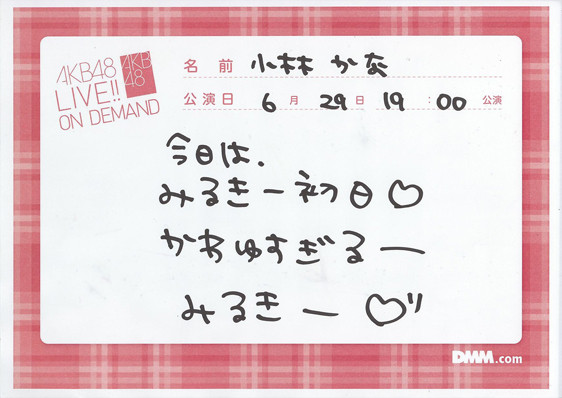 AKB48
LIVE!!
ON DEMAND
AKB
48
名前 小林 かな
公演日 6月 29日 19:00 公演
今日は、
みるきー初日♡
かわゆすぎるー
みるきー ♡
DMM.com